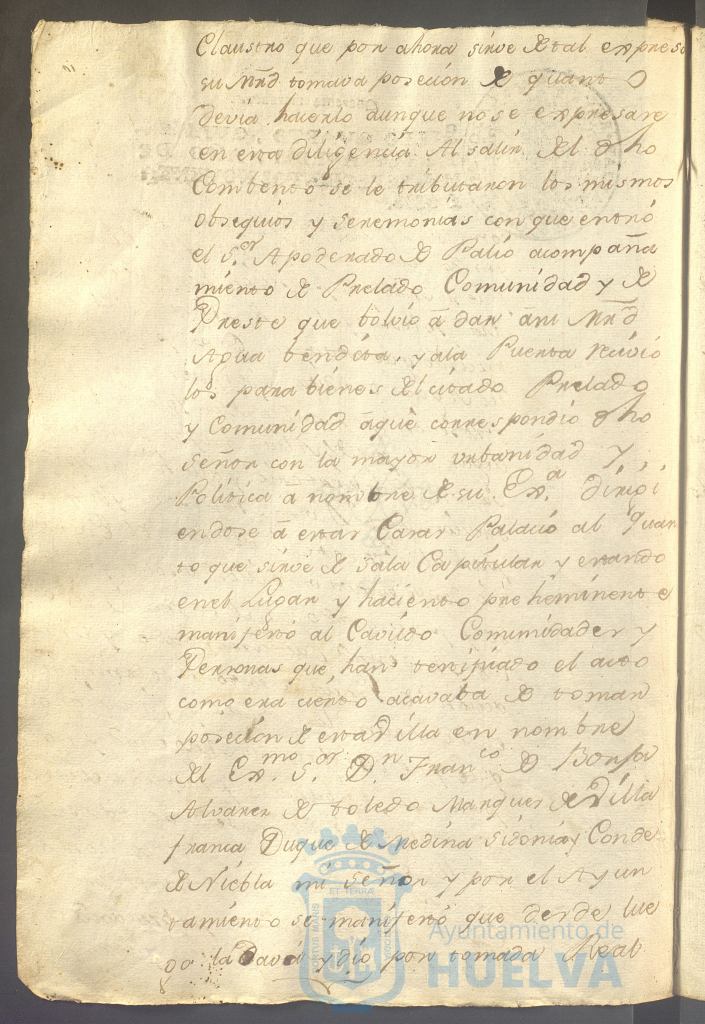 Claustro que por ahora sirve de tal expreso
su Mrd tomava posecion de quanto
devia hacerlo aunque no se expresare
en esta diligencia. Al salir del dho
Combento se le tributaron los mismos
obsequios y seremonias con que entró
el S.or Apoderado de Palio acompaña
miento de Prelado Comunidad y de
Preste que bolvio â dar asu Mrd
Agua bendita, y ala Puerta recivio
los para bienes del citado Prelado
y Comunidad âque correspondio dho
señor con la mayor urbanidad y
Politica â nombre de su Ex.a dirigi
endose â estas Casas Palacio al quar
to que sirve de sala Capitular y estando
en el Lugar y haciento preheminente
manifestó al Cavildo Comunidades y
Personas que han testificado el acto
como era cierto acavaba de tomar
posecion de esta Villa en nombre
del Ex.mo S.or D.n Fran.co de Borja
Alvarez de Toledo Marques de Villa
franca Duque de Medina Sidonia y Conde
de Niebla mi Señor y por el Ayun
tamiento se manifestó que desde lue
go la Dava y dio por tomada Real
ET TERRÆ
Ayuntamiento de
HUELVA